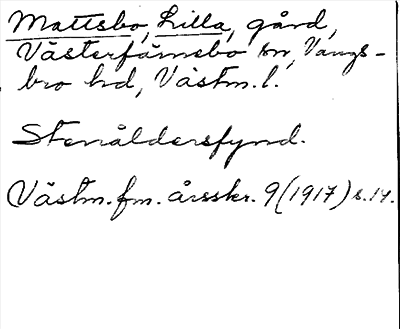 Mattsbo, Lilla, gård,
Västerfärnebo sn, Vangs-
bro hd, Västm. l.
Stenåldersfynd.
Västm. fm. årsskr. 9 (1917) s. 14.